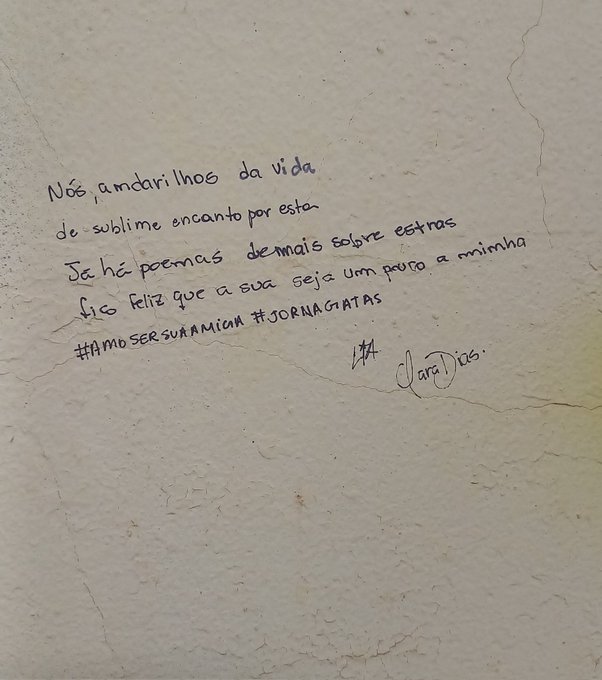 Nós, andarilhos da vida
de sublime encanto por esta
Ja há poemas demais sobre estras
fico feliz que a sua seja um pouco a minha
#AMOSERSUAAMIGA #JORNAGATAS
Clara Dias.